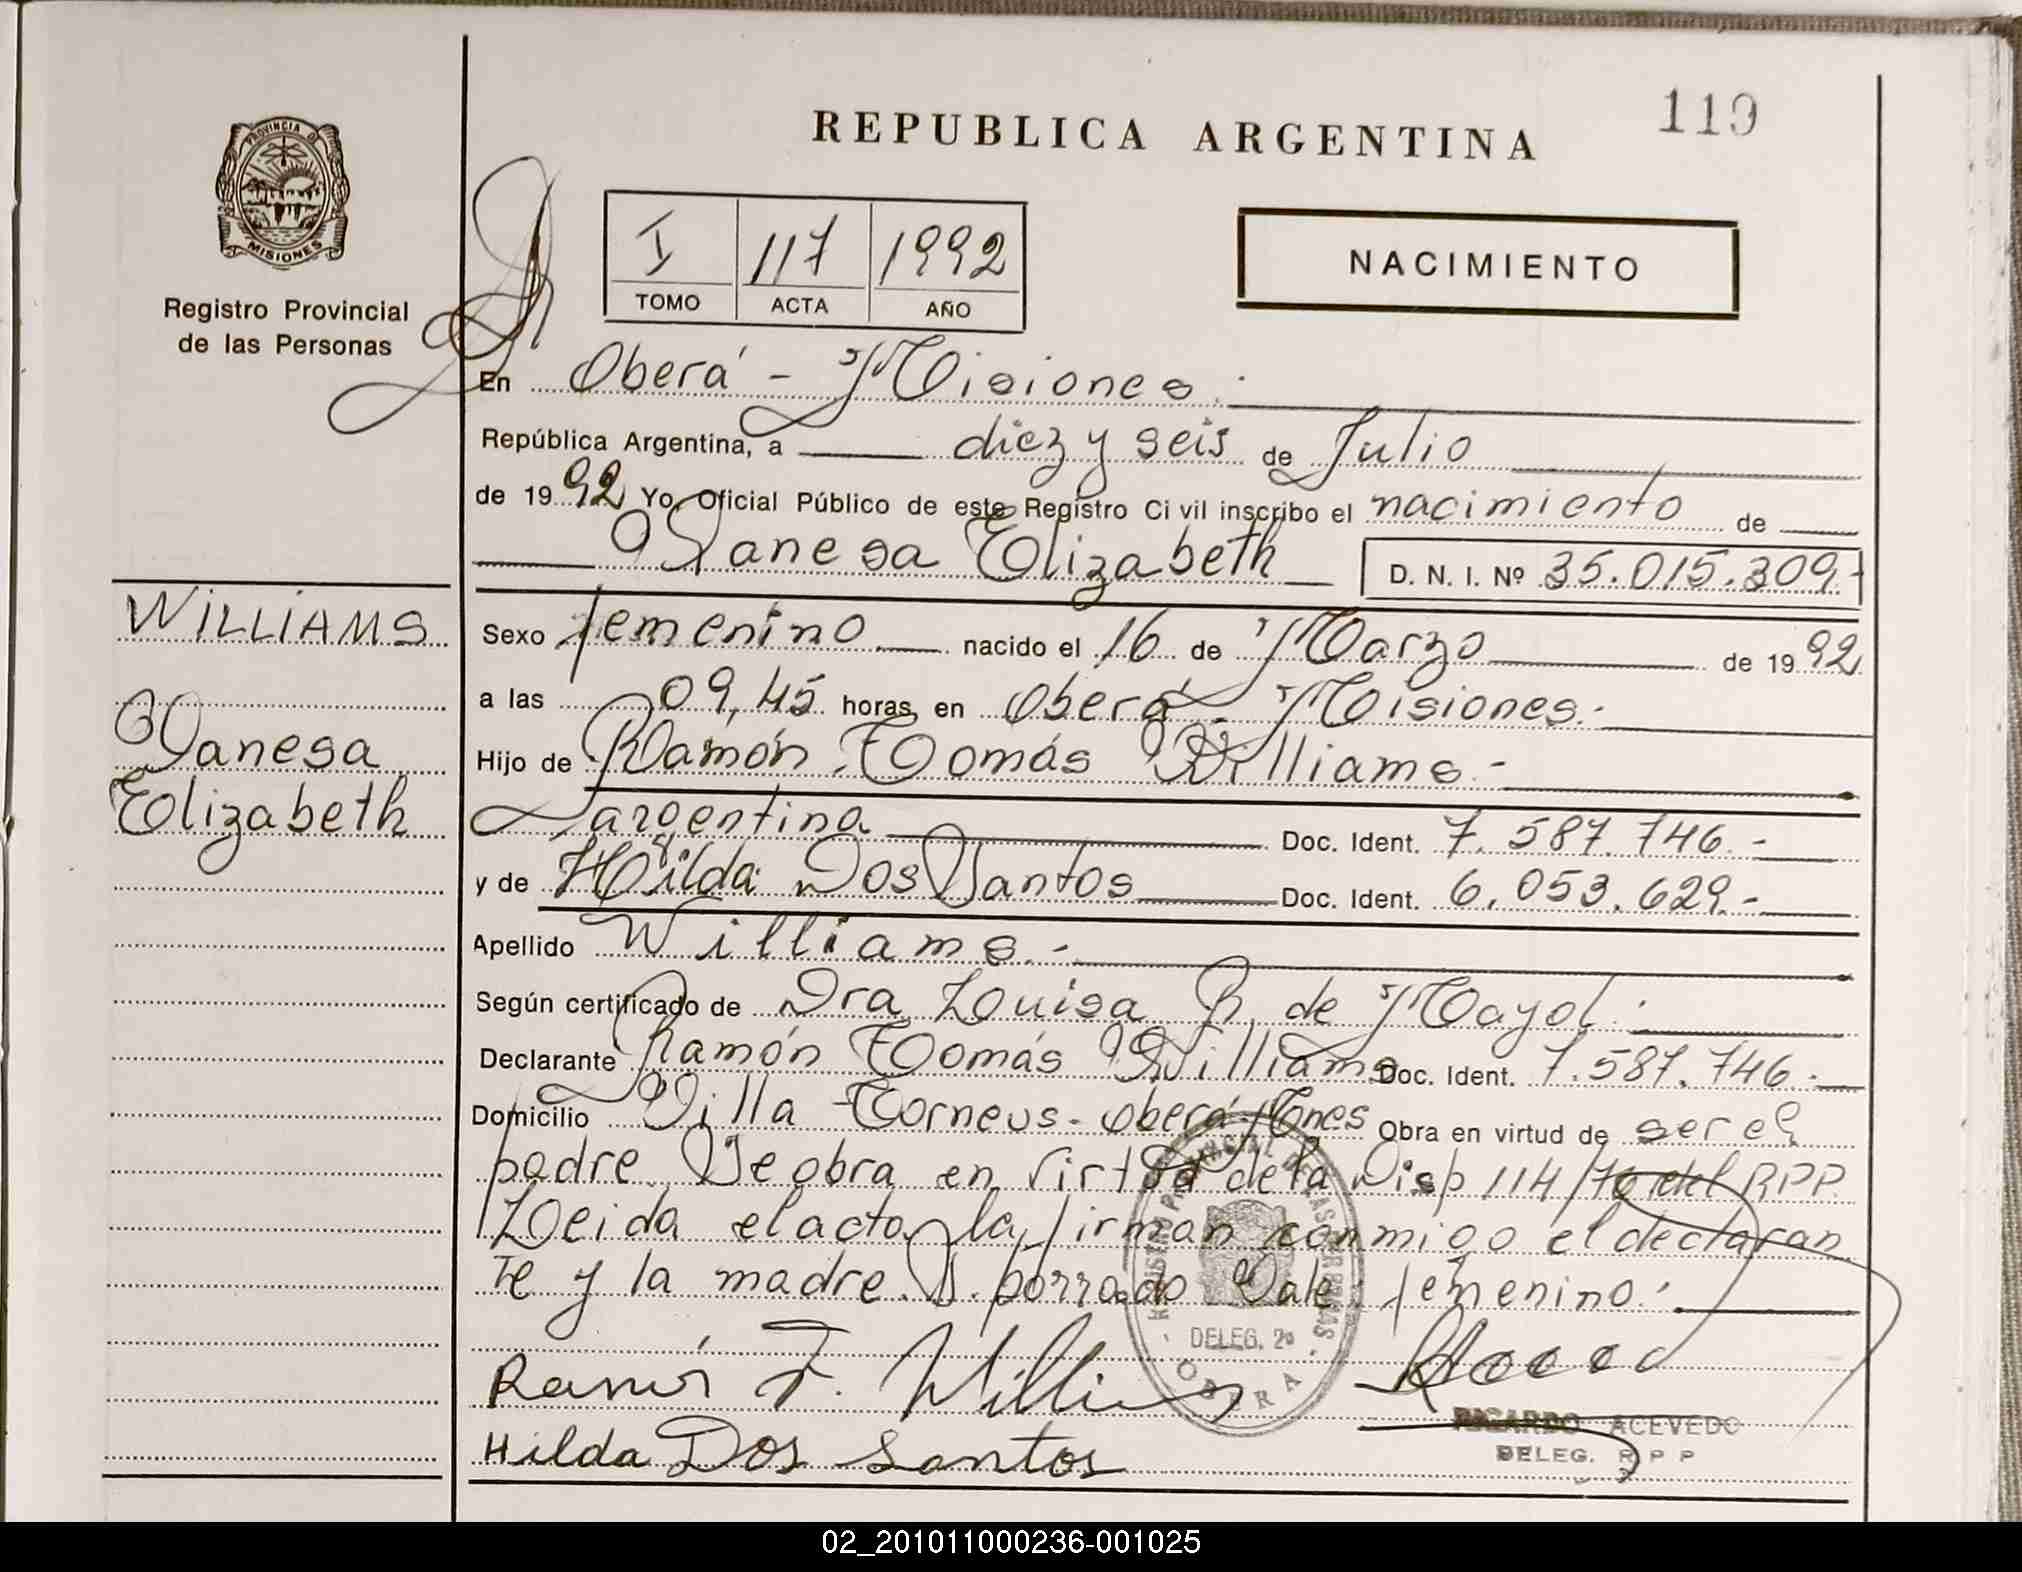 119
REPUBLICA ARGENTINA
PROVINCIA DE
MISIONES
Registro Provincial
de las Personas
I 117 1992
TOMO ACTA AÑO
NACIMIENTO
En Oberá - Misiones.
República Argentina, a diez y seis de Julio
de 1992 Yo, Oficial Público de este Registro Civil inscribo el nacimiento de
Vanesa Elizabeth D. N. I. Nº 35.015.309.-
WILLIAMS
Vanesa
Elizabeth
Sexo femenino nacido el 16 de Marzo de 1992
a las 09,45 horas, en Oberá - Misiones.-
Hijo de Ramón Tomás Williams.-
argentina Doc. Ident. 7.587.746.-
y de Hilda Dos Santos Doc. Ident. 6.053.629.-
Apellido Williams.-
Según certificado de Dra Louisa R. de Mayol.
Declarante Ramón Tomás Williams Doc. Ident. 7.587.746.-
Domicilio Villa Torneus - Oberá Mnes Obra en virtud de ser el
padre. Se obra en virtud de la Disp 114/76 del RPP.
Leida el acta, la firman conmigo el declaran
te y la madre. S. borrado Vale: femenino.-
REGISTRO PROVINCIAL DE LAS PERSONAS
DELEG. 2ª
OBERA
Ramón T. Williams
Hilda Dos Santos
RICARDO ACEVEDO
DELEG. R P P
02_201011000236-001025